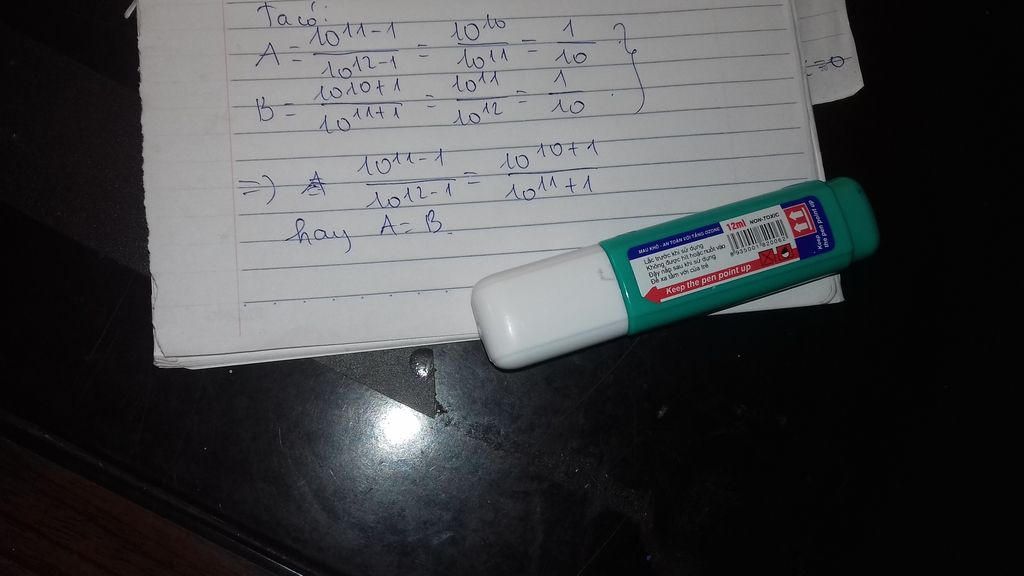 Ta có:
A = \frac{10^{11-1}}{10^{12-1}} = \frac{10^{10}}{10^{11}} = \frac{1}{10}
B = \frac{10^{10+1}}{10^{11+1}} = \frac{10^{11}}{10^{12}} = \frac{1}{10}
=) \frac{10^{11-1}}{10^{12-1}} = \frac{10^{10+1}}{10^{11+1}}
hay A = B.
MAU KHÔ - AN TOÀN VỚI TẦNG OZONE
12ml NON-TOXIC
Lắc trước khi sử dụng
Không được hít hoặc nuốt vào
Đậy nắp sau khi sử dụng
Để xa tầm với của trẻ
Keep the pen point up
8 935001 820062
Keep
the pen point up